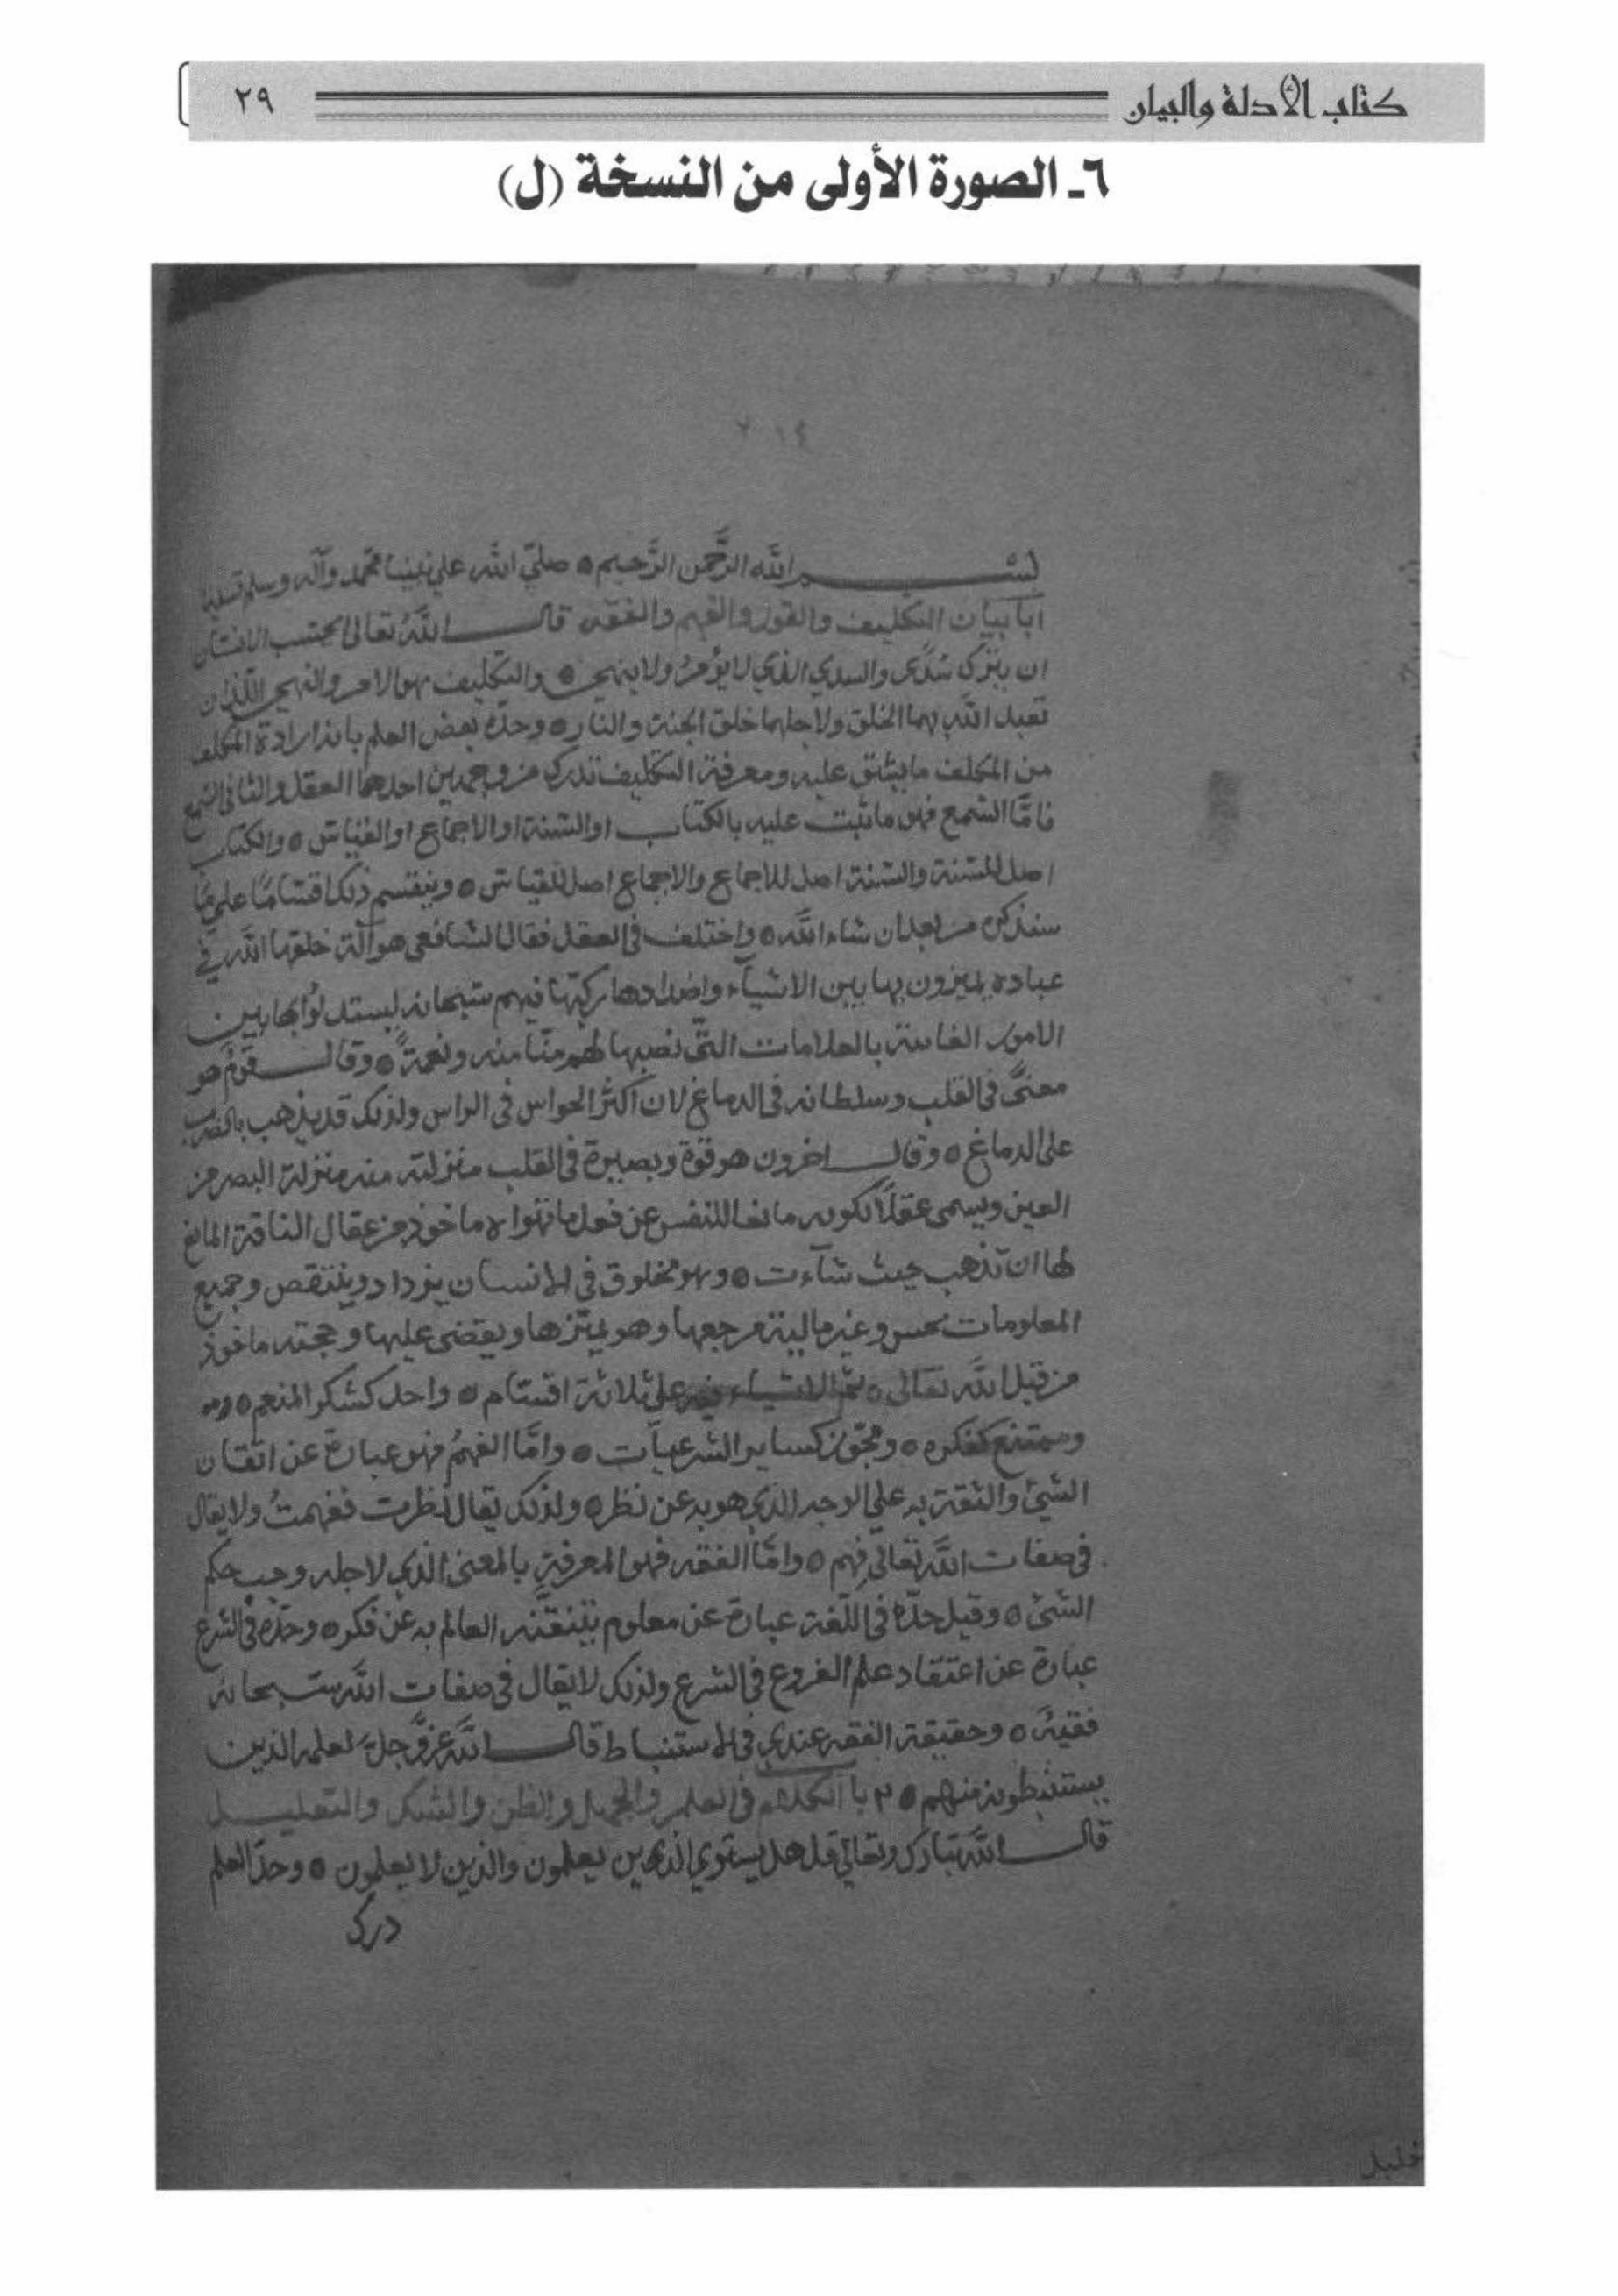 كتاب الأدلة والبيان ٢٩
٦ـ الصورة الأولى من النسخة (ل)
٢٠١٤
بسم الله الرَّحمن الرَّحيم ٥ صلي الله علي نبينا محمد وآله وسلم تسليما
ا باب بيان التكليف والقول والفهم والفقه قال الله تعالى ايحسب الانسان
ان يترك سُدًى والسدي الذي لا يؤمرُ ولا ينهى ٥ والتكليف هو الامر والنهي اللذان
تعبد الله بهما الخلق ولاجلهما خلق الجنة والنار ٥ وحدّه بعض العلم بانه ارادة المكلف
من المكلف ما يشق عليه ومعرفة التكليف تدرك من وجهين احدهما العقل والثاني السمع
فامّا السمع فهو ما ثبت عليه بالكتاب او السنة او الاجماع او القياس ٥ والكتاب
اصل للسنة والسنة اصل للاجماع والاجماع اصل للقياس ٥ وينقسم ذلك اقسامًا على ما
سنذكره من بعد ان شاء الله ٥ واختلف في العقل فقال الشافعي هو آلة خلقها الله في
عباده يميزون بها بين الاشيآء واضدادها ركبها فيهم سبحانه ليستدلوا بها بين
الامور الغائبة بالعلامات التي نصبها لهم منّا منه ونعمةً ٥ وقال قومٌ هو
معنىً في القلب وسلطانه في الدماغ لان اكثر الحواس في الراس ولذلك قد يذهب بالضرب
على الدماغ ٥ وقال اخرون هو قوة وبصيرة في القلب منزلته منه منزلة البصر من
العين ويسمى عقلًا لكونه مانعا للنفس عن فعل ما تهواه ماخوذ من عقال الناقة المانع
لها ان تذهب حيث شآءت ٥ وهو مخلوق في الانسان يزداد وينتقص وجميع
المعلومات بحس وغيره اليه مرجعها وهو يميزها ويقضي عليها وحجته ماخوذ
من قبل الله تعالى ٥ ثم الاشياء فيه على ثلاثة اقسام ٥ واحد كشكر المنعم ٥
وممتنع ككفره ٥ ومجوّز كساير الشرعيات ٥ وامّا الفهمُ فهو عبارة عن اتقان
الشئ والثقة به علي الوجه الذي هو به عن نظر ٥ ولذلك يقال نظرت ففهمتُ ولا يقال
في صفات الله تعالى فهم ٥ وامّا الفقه فهو المعرفة بالمعنى الذي لاجله وجب حكم
الشئ ٥ وقيل حدّه في اللّغة عبارة عن معلوم يتيقّنه العالم به عن فكر ٥ وحدّه في الشرع
عبارة عن اعتقاد علم الفروع في الشرع ولذلك لا يقال في صفات الله سبحانه
فقيهٌ ٥ وحقيقة الفقه عندي في الاستنباط قال الله عزّ وجلّ لعلمه الذين
يستنبطونه منهم ٥ ٢ باب الكلام في العلم والجهل والظن والشك والتعليل
قال الله تبارك وتعالى قل هل يستوي الذين يعلمون والذين لا يعلمون ٥ وحدّ العلم
درك